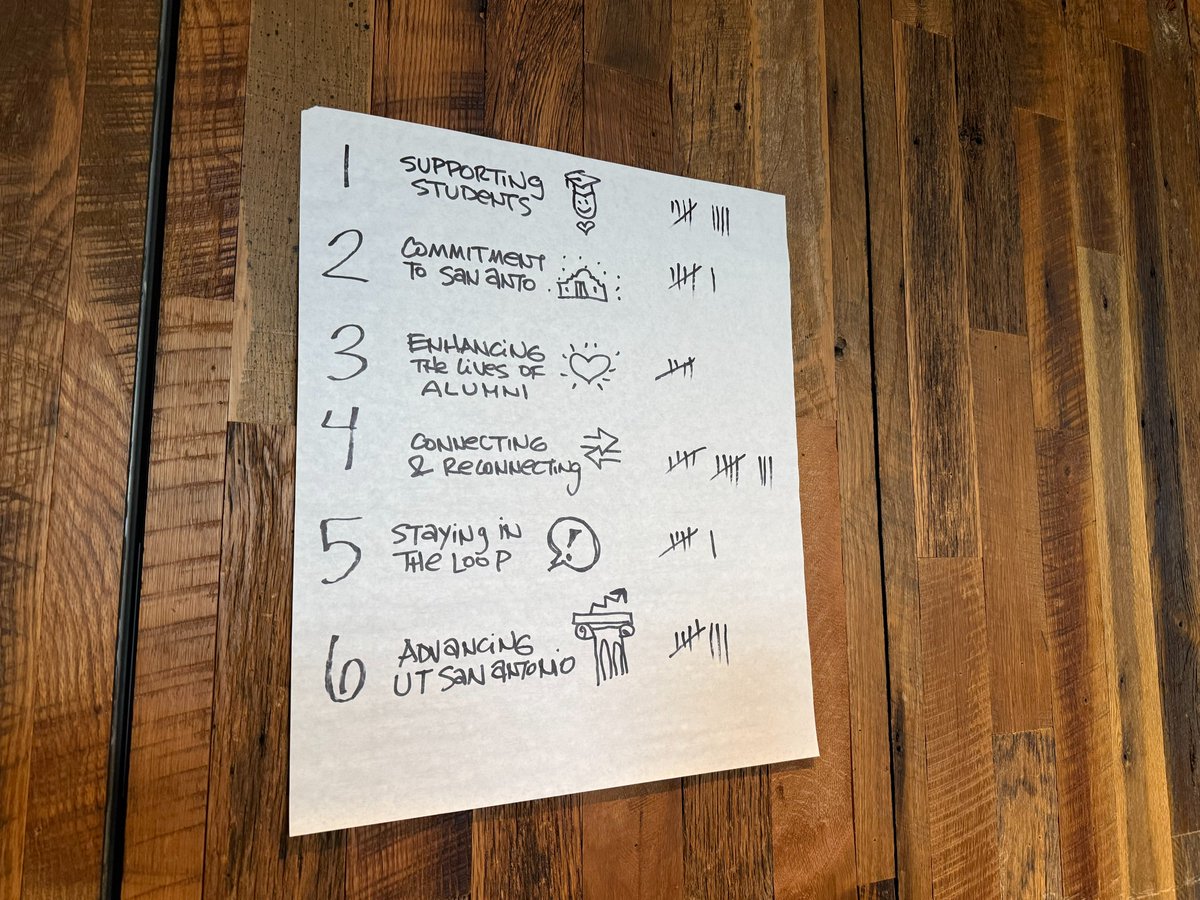 1 SUPPORTING
STUDENTS
2 COMMITMENT
TO SAN ANTO
3 ENHANCING
THE LIVES OF
ALUMNI
4 CONNECTING
& RECONNECTING
5 STAYING IN
THE LOOP
6 ADVANCING
UT SAN ANTONIO